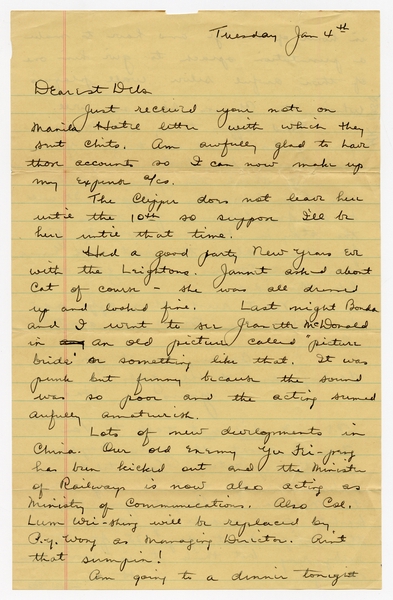 Tuesday Jan 4th
Dearest Dels.
Just received your note on
Manila Hotel letter with which they
sent chits. Am awfully glad to have
those accounts so I can now make up
my expense a/cs.
The Clipper does not leave here
until the 10th so suppose I'll be
here until that time.
Had a good party New Years Eve
with the Leightons. Jannet asked about
Cat of course - she was all dressed
up and looked fine. Last night Bonda
and I went to see Jeanette McDonald
in an old picture called "picture
bride" or something like that. It was
punk but funny because the sound
was so poor and the acting seemed
awfully amateurish.
Lots of new developments in
China. Our old Enemy Yu Fei-peng
has been kicked out and the Minister
of Railways is now also acting as
Ministry of Communications. Also Col.
Lum Wei-shing will be replaced by
P.Y. Wong as Managing Director. Aint
that sumpin!
Am going to a dinner tonight